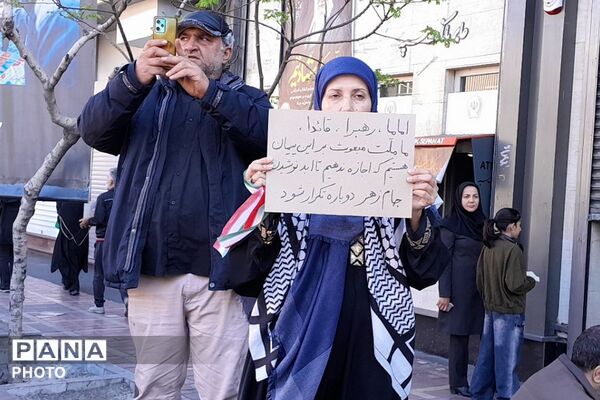 اماما، رهبرا، قائدا،
ما ملت مبعوث بر این پیمان
هستیم که اجازه ندهیم تا ابد نوشیدن
جام زهر دوباره تکرار شود
PANA
PHOTO